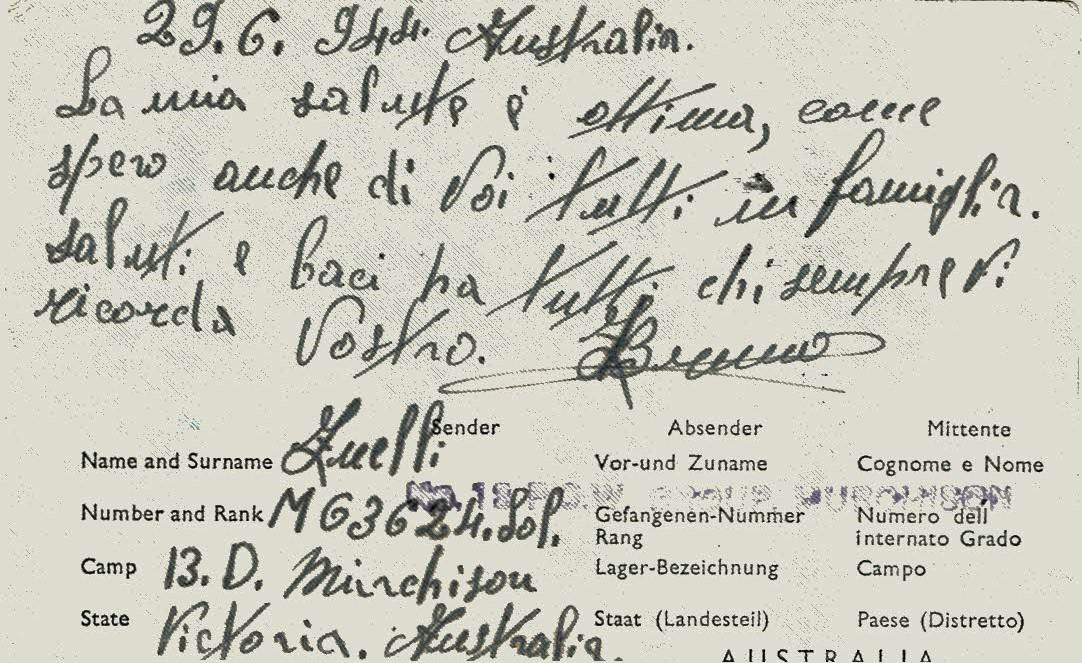 29.6.944. Australia.
La mia salute è ottima, come
spero anche di Voi tutti in famiglia.
saluti e baci ha tutti chi sempre Vi
ricorda
Vostro. Bruno
Sender Absender Mittente
Name and Surname Zuelli Vor-und Zuname Cognome e Nome
Number and Rank M63624. Sol. Gefangenen-Nummer Numero dell
Rang internato Grado
Camp 13. D. Murchison Lager-Bezeichnung Campo
State Victoria. Australia. Staat (Landesteil) Paese (Distretto)
AUSTRALIA